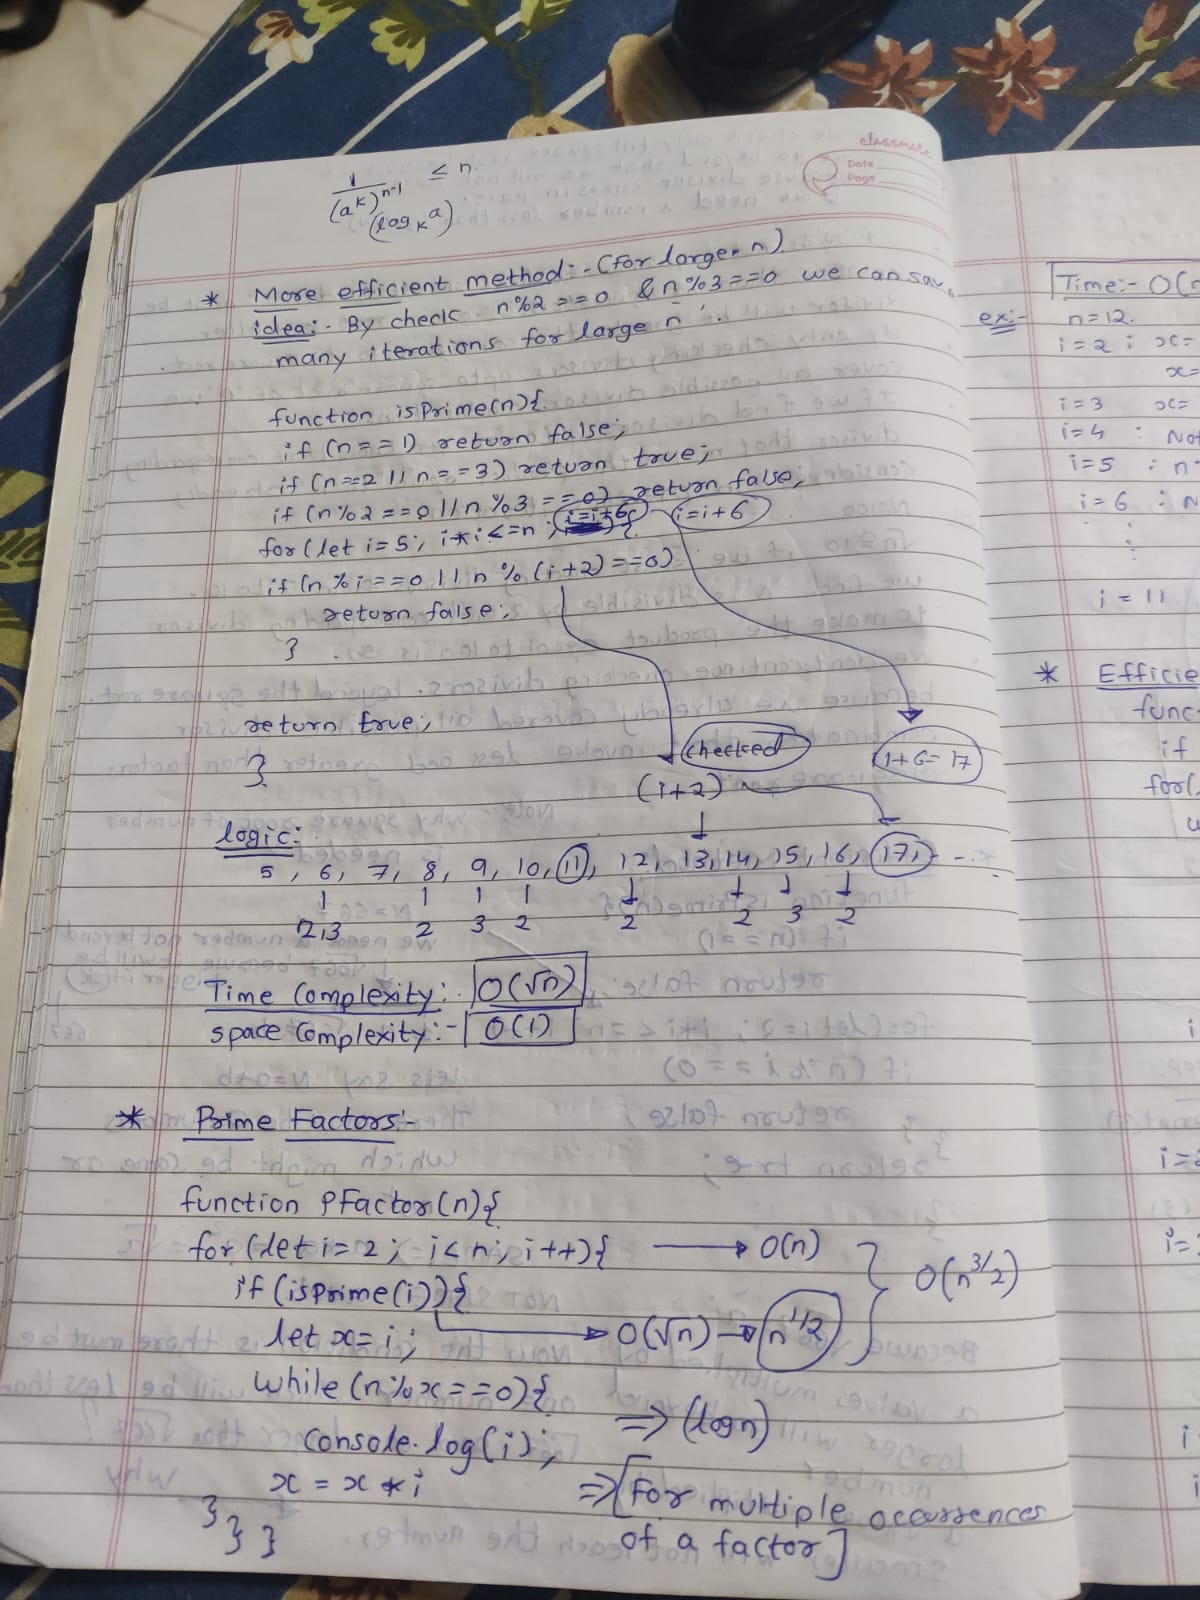 classmate
Date
Page
1/(a^k)^n-1 ≤ n.
(log_k a)
* More efficient method:- (For larger n)
idea:- By check n%2==0 & n%3==0 we can save
many iterations for large n
function isPrime(n){
if (n==1) return false;
if (n==2 || n==3) return true;
if (n%2==0 || n%3==0) return false;
for(let i=5; i*i<=n; i=i+6){ i=i+6
if (n%i==0 || n%(i+2)==0)
return false;
}
return true;
}
checked
11+6=17
(i+2)
logic:
5, 6, 7, 8, 9, 10, 11, 12, 13, 14, 15, 16, 17, - - .
2,3 2 3 2 2 2 3 2
Time Complexity:- O(√n)
space Complexity:- O(1)
* Prime Factors:-
function PFactor(n){
for(let i=2; i<n; i++){ → O(n) } O(n^3/2)
if (isPrime(i)){
let x=i; → O(√n) → n^1/2
while(n%x==0){ ⇒ (logn)
console.log(i);
x = x * i ⇒ [For multiple occurrences
} } } of a factor]
Time:- O(n
ex:- n=12.
i=2 ; x=
x=
i=3 x=
i=4 : Not
i=5 : n
i=6 : N
i=11
* Efficie
func
if
for(
i
i=
i=
i
i